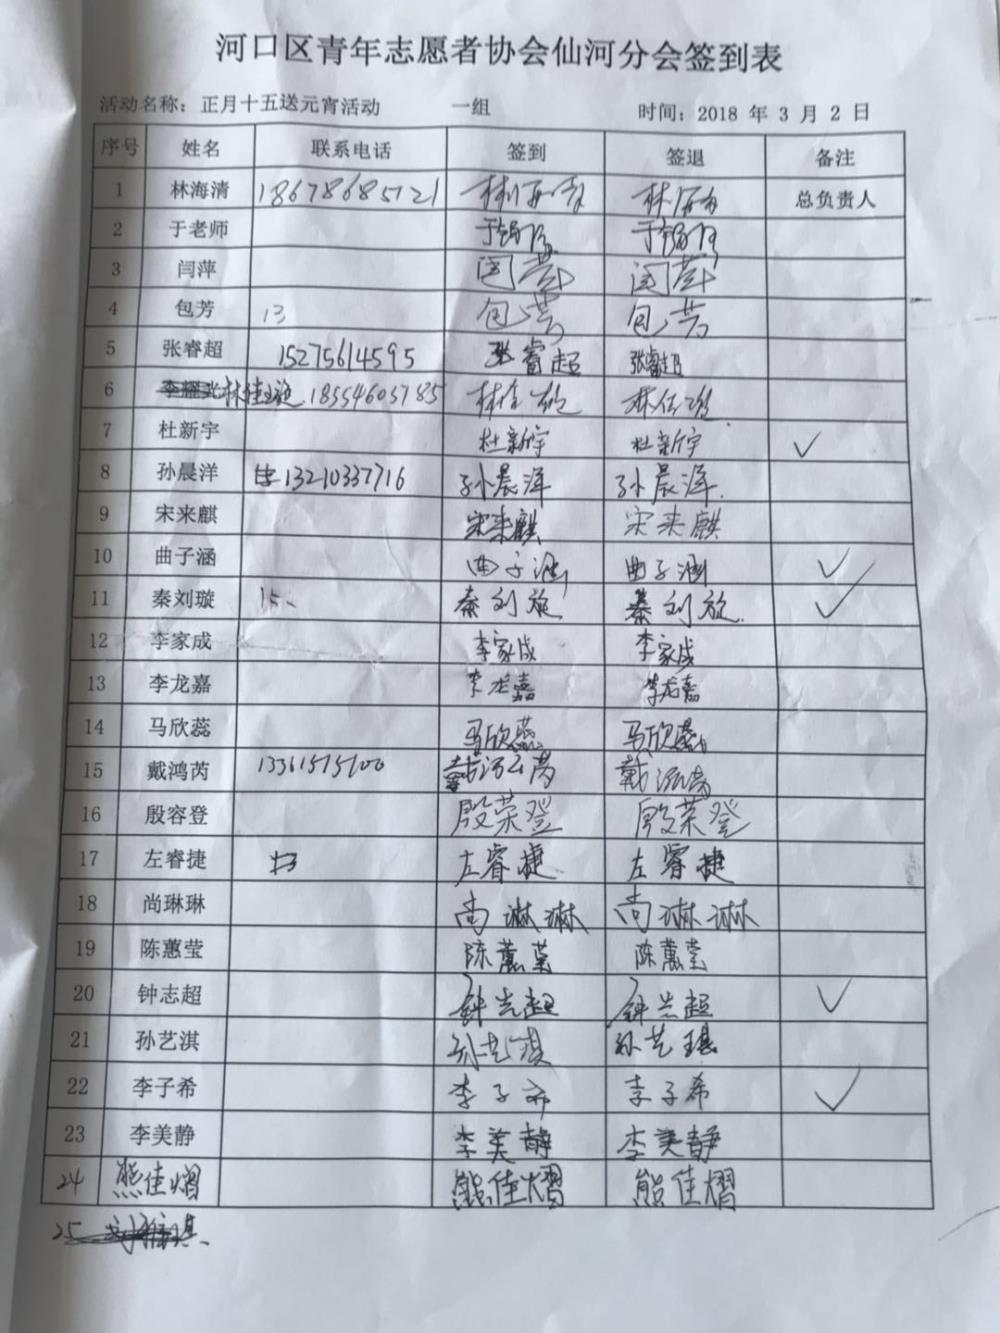 河口区青年志愿者协会仙河分会签到表
活动名称：正月十五送元宵活动 一组 时间：2018 年 3 月 2 日
序号 姓名 联系电话 签到 签退 备注
1 林海清 18678685721 林海清 林海清 总负责人
2 于老师
3 闫萍 闫萍 闫萍
4 包芳 13 包芳 包芳
5 张睿超 15275614595 张睿超 张睿超
6 18554603785
7 杜新宇 杜新宇 杜新宇 ✓
8 孙晨洋 13210337716 孙晨洋 孙晨洋
9 宋来麒 宋来麒 宋来麒
10 曲子涵 曲子涵 曲子涵 ✓
11 秦刘璇 15 秦刘旋 秦刘旋 ✓
12 李家成 李家成 李家成
13 李龙嘉 李龙嘉 李龙嘉
14 马欣蕊 马欣蕊 马欣蕊
15 戴鸿芮 13361515700
16 殷容登 殷荣登 殷荣登
17 左睿捷 左睿捷 左睿捷
18 尚琳琳 尚琳琳 尚琳琳
19 陈蕙莹 陈蕙莹 陈蕙莹
20 钟志超 钟志超 钟志超 ✓
21 孙艺淇 孙艺淇 孙艺琪
22 李子希 李子希 李子希 ✓
23 李美静 李美静 李美静
24 熊佳熠 熊佳熠 熊佳熠
25